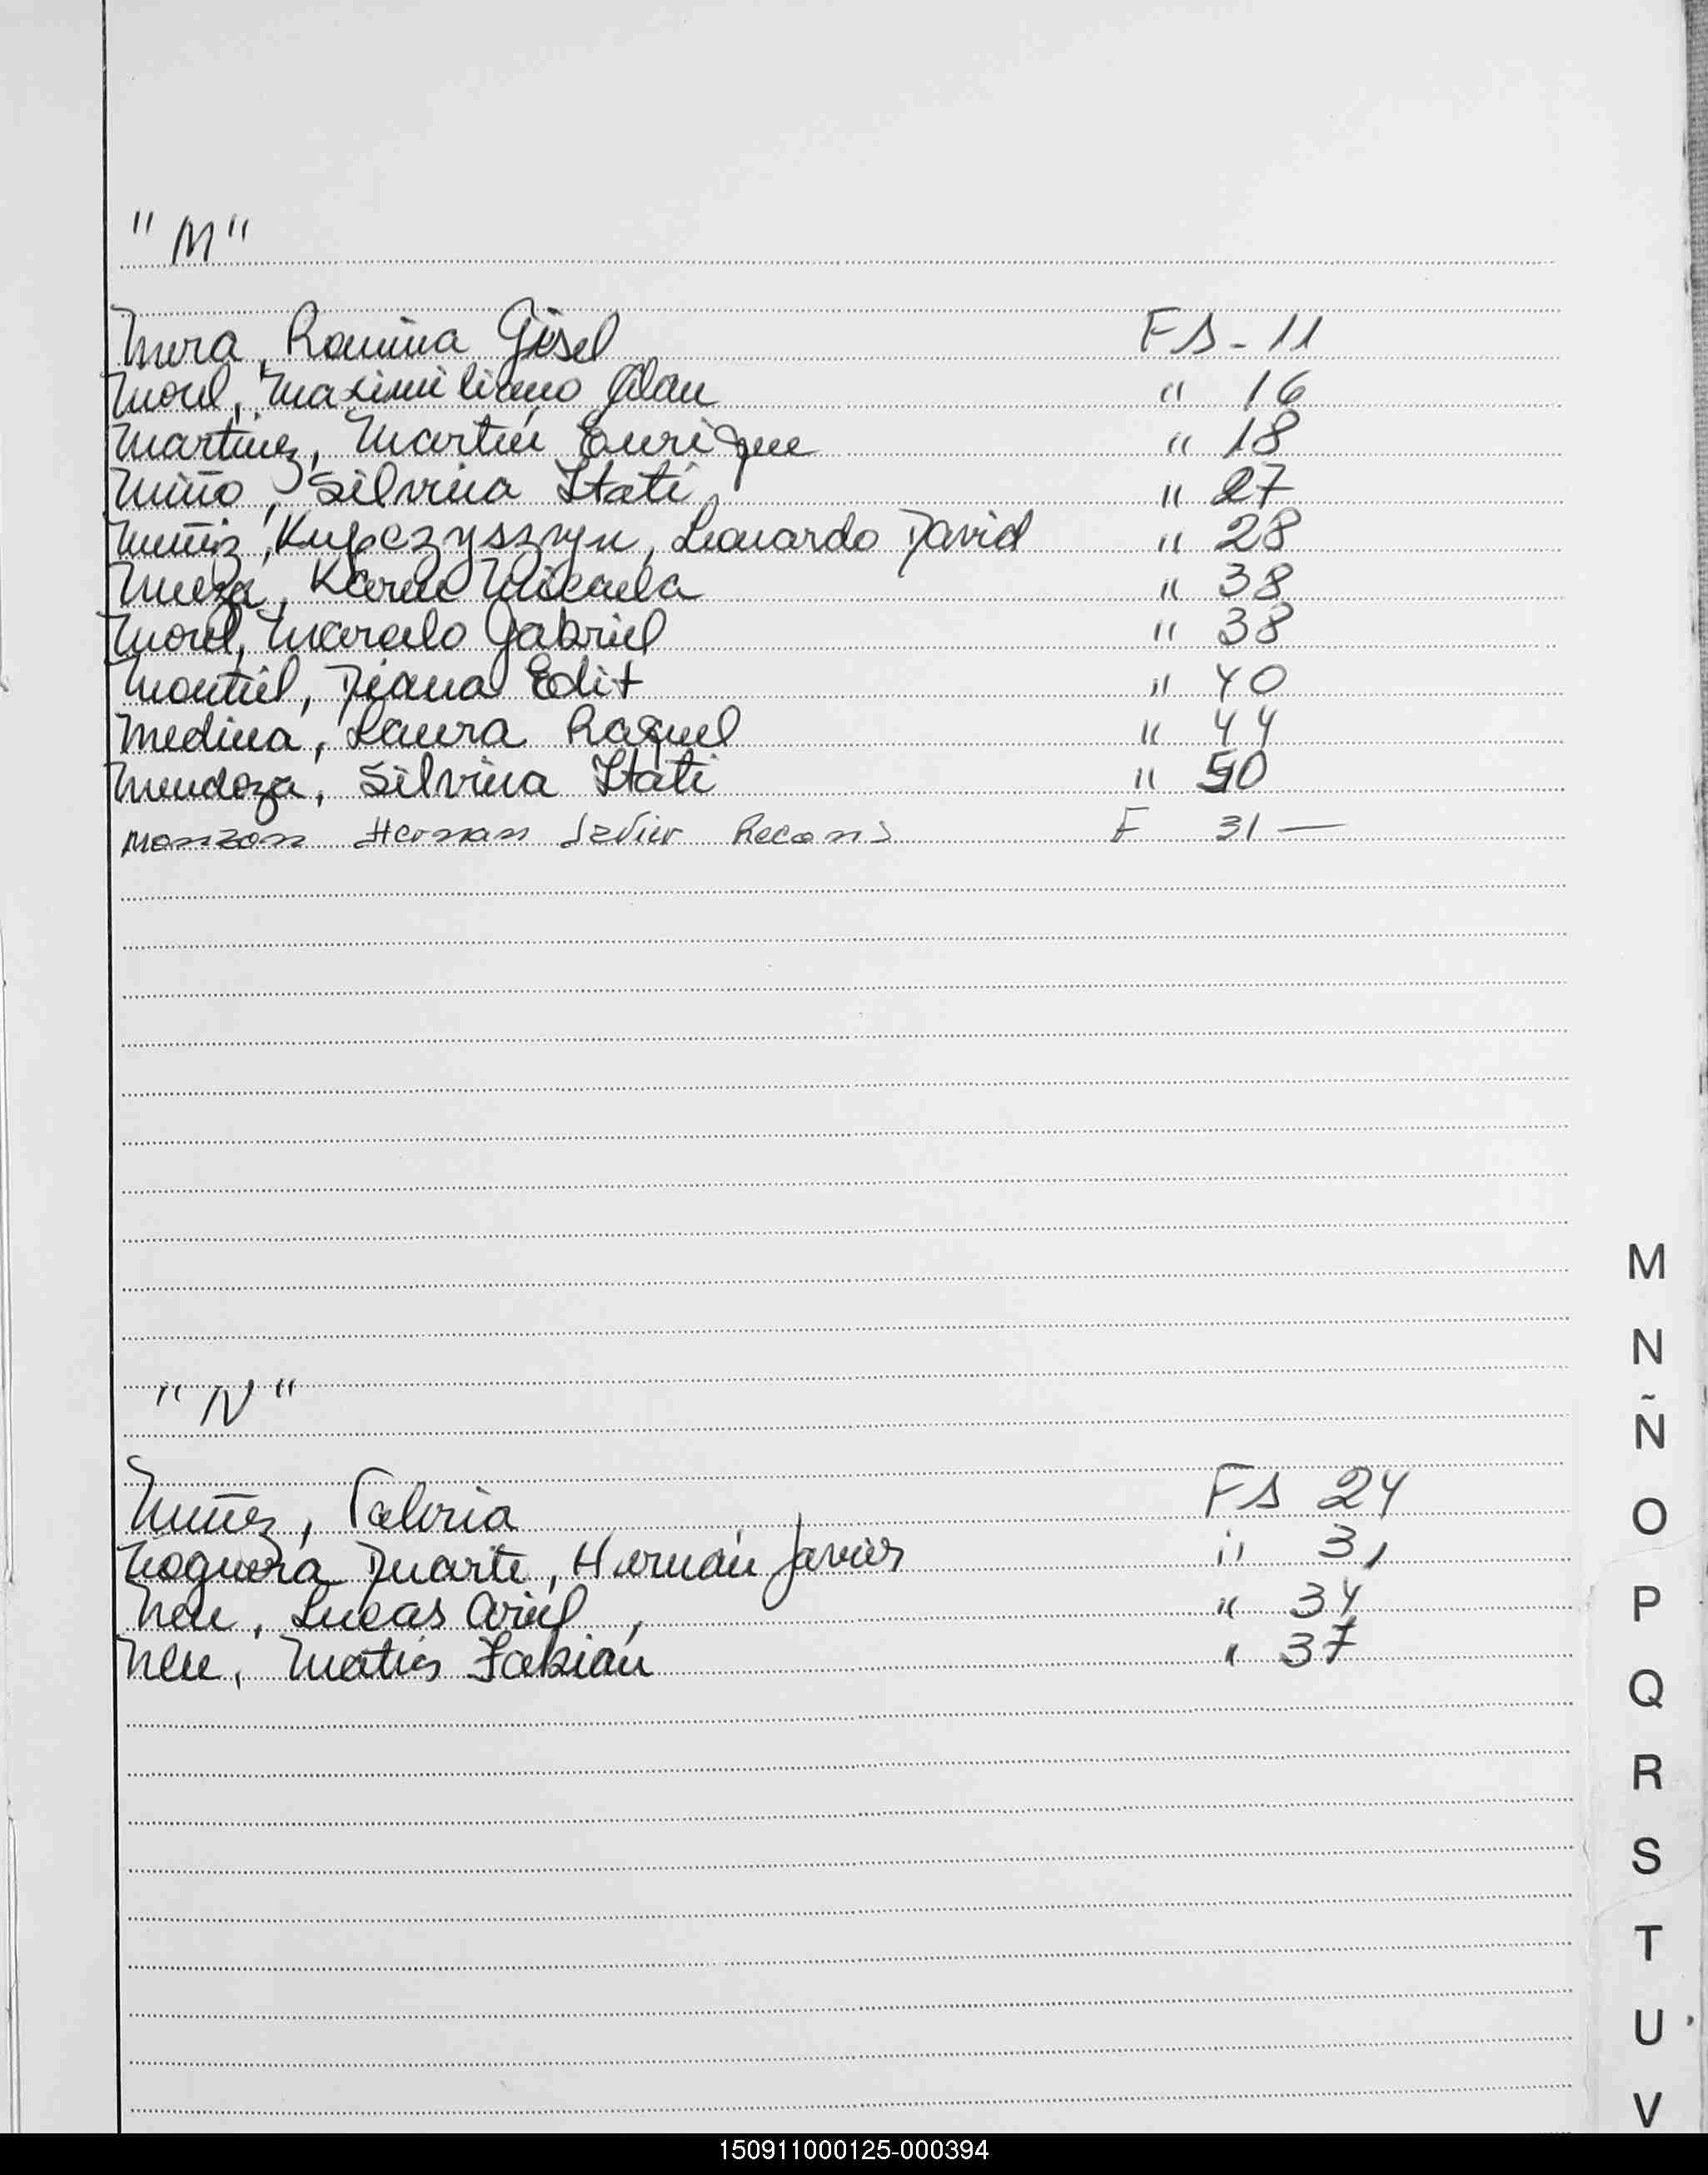 "M"
Mora, Romina Gisel FS - 11
Morel, Maximiliano Alan " 16
Martínez, Martín Enrique " 18
Miño, Silvina Itatí " 27
Muñiz Kupczyszyn, Leonardo David " 28
Meza, Karen Micaela " 38
Morel, Marcelo Gabriel " 38
Montiel, Diana Edit " 40
Medina, Laura Raquel " 44
Mendoza, Silvina Itati " 50
Monzon Hernan Javier F 31 —
"N"
Nuñez, Valeria FS 24
Noguera Duarte, Hernán Javier " 31
Neu, Lucas Ariel, " 34
Neu, Matías Fabián " 37
M
N
Ñ
O
P
Q
R
S
T
U
V
150911000125-000394